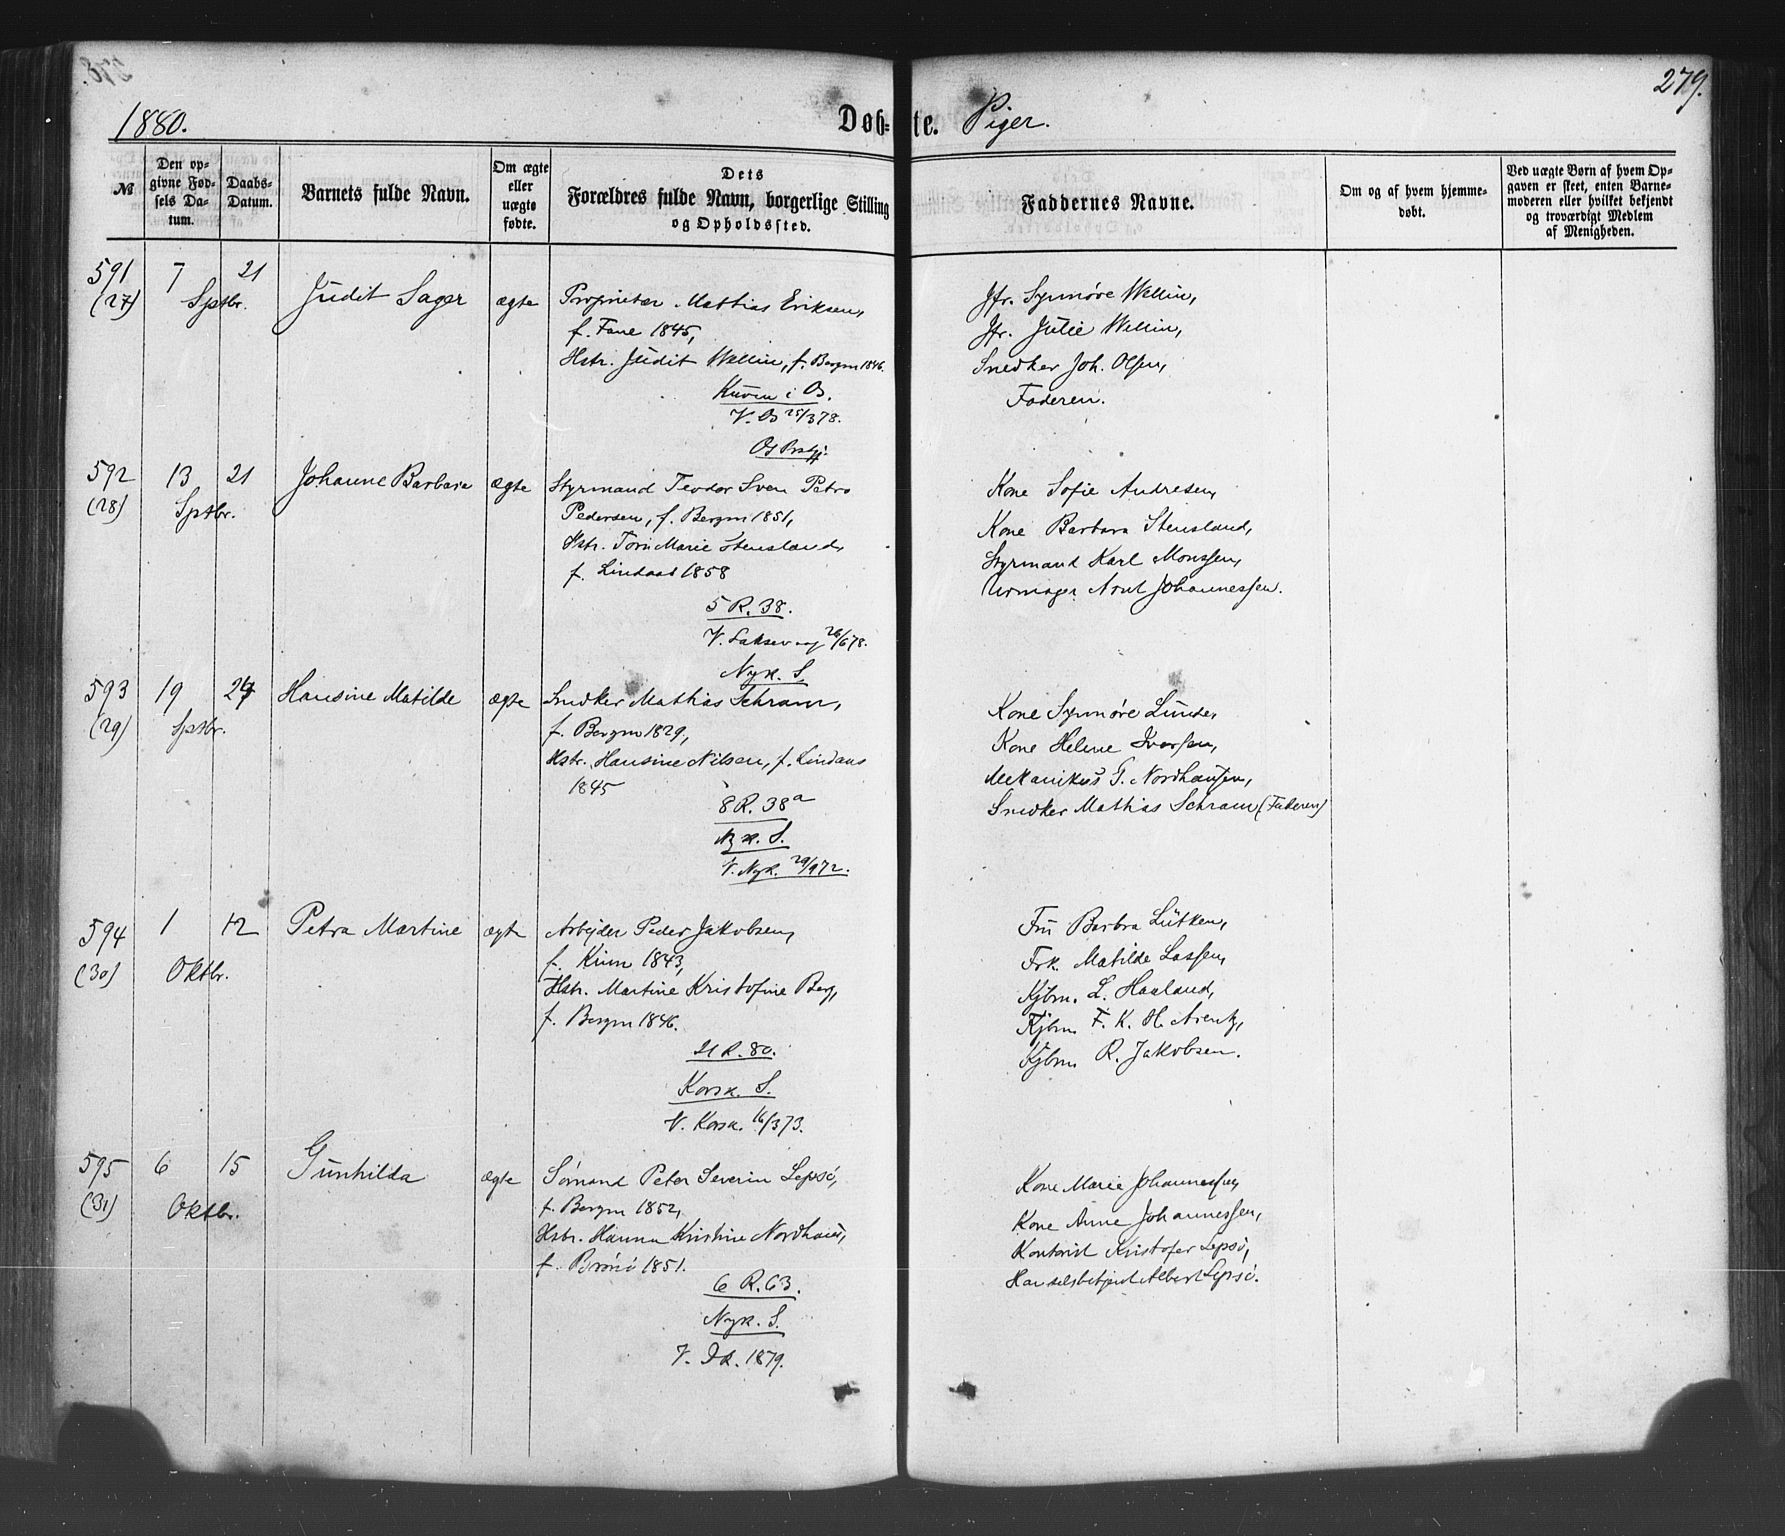 279.
1880.
Døb-te. Piger.
№
Den op-
givne Fød-
sels Da-
tum.
Daabs-
Datum.
Barnets fulde Navn.
Om ægte
eller
uægte
fødte.
Dets
Forældres fulde Navn, borgerlige Stilling
og Opholdssted.
Faddernes Navne.
Om og af hvem hjemme-
døbt.
Ved uægte Børn af hvem Op-
gaven er skeet, enten Barne-
moderen eller hvilket bekjendt
og troværdigt Medlem
af Menigheden.
591 7 21 Judit Sager ægte Proprietær Mattias Eriksen,
(27) Sptbr.
f. Fane 1845,
Hstr. Judit Wellin, f. Bergen 1846.
Kuven i Os.
V. Os 25/3 78.
Os Prstgj.
Jfr. Synnøve Wellin,
Jfr. Julie Wellin,
Snedker Joh. Olsen,
Faderen.
592 13 21 Johanne Barbara ægte Styrmand Teodor Sven Petro
(28) Sptbr.
Pedersen, f. Bergen 1851,
Hstr. Toni Marie Stensland,
f. Lindaas 1858
5 R. 38.
V. Laksevaag 26/6 78.
Nyk. S.
Kone Sofie Andresen,
Kone Barbara Stensland,
Styrmand Karl Monssen,
Urmager Arnt Johannessen.
593 19 24 Hansine Matilde ægte Snedker Mathias Schram,
(29) Sptbr.
f. Bergen 1829,
Hstr. Hansine Nilsen, f. Lindaas
1845
8 R. 38a
Nyk. S.
V. Nyk. 29/9 72.
Kone Synnøve Lunde,
Kone Helene Iversen,
Mekanikus G. Nordhausen,
Snedker Mathias Schram (Faderen)
594 1 12 Petra Martine ægte Arbejder Peder Jakobsen,
(30) Oktbr.
f. Kinn 1843,
Hstr. Martine Kristofine Berg,
f. Bergen 1846.
21 R. 80.
Korsk. S.
V. Korsk. 16/3 73.
Fru Barbra Lütken,
Frk. Matilde Lassen,
Kjbm. L. Haaland,
Kjbm. F. K. H. Arentz,
Kjbm. R. Jakobsen.
595 6 15 Gunhilda ægte Sømand Peter Severin Lepsø,
(31) Oktbr.
f. Bergen 1852,
Hstr. Hanna Kristine Nordhuus,
f. Brønø 1851.
6 R. 63.
Nyk. S.
V. D.K. 1879.
Kone Marie Johannessen,
Kone Anne Johannessen,
Kontorist Kristofer Lepsø,
Handelsbetjent Albert Lepsø.